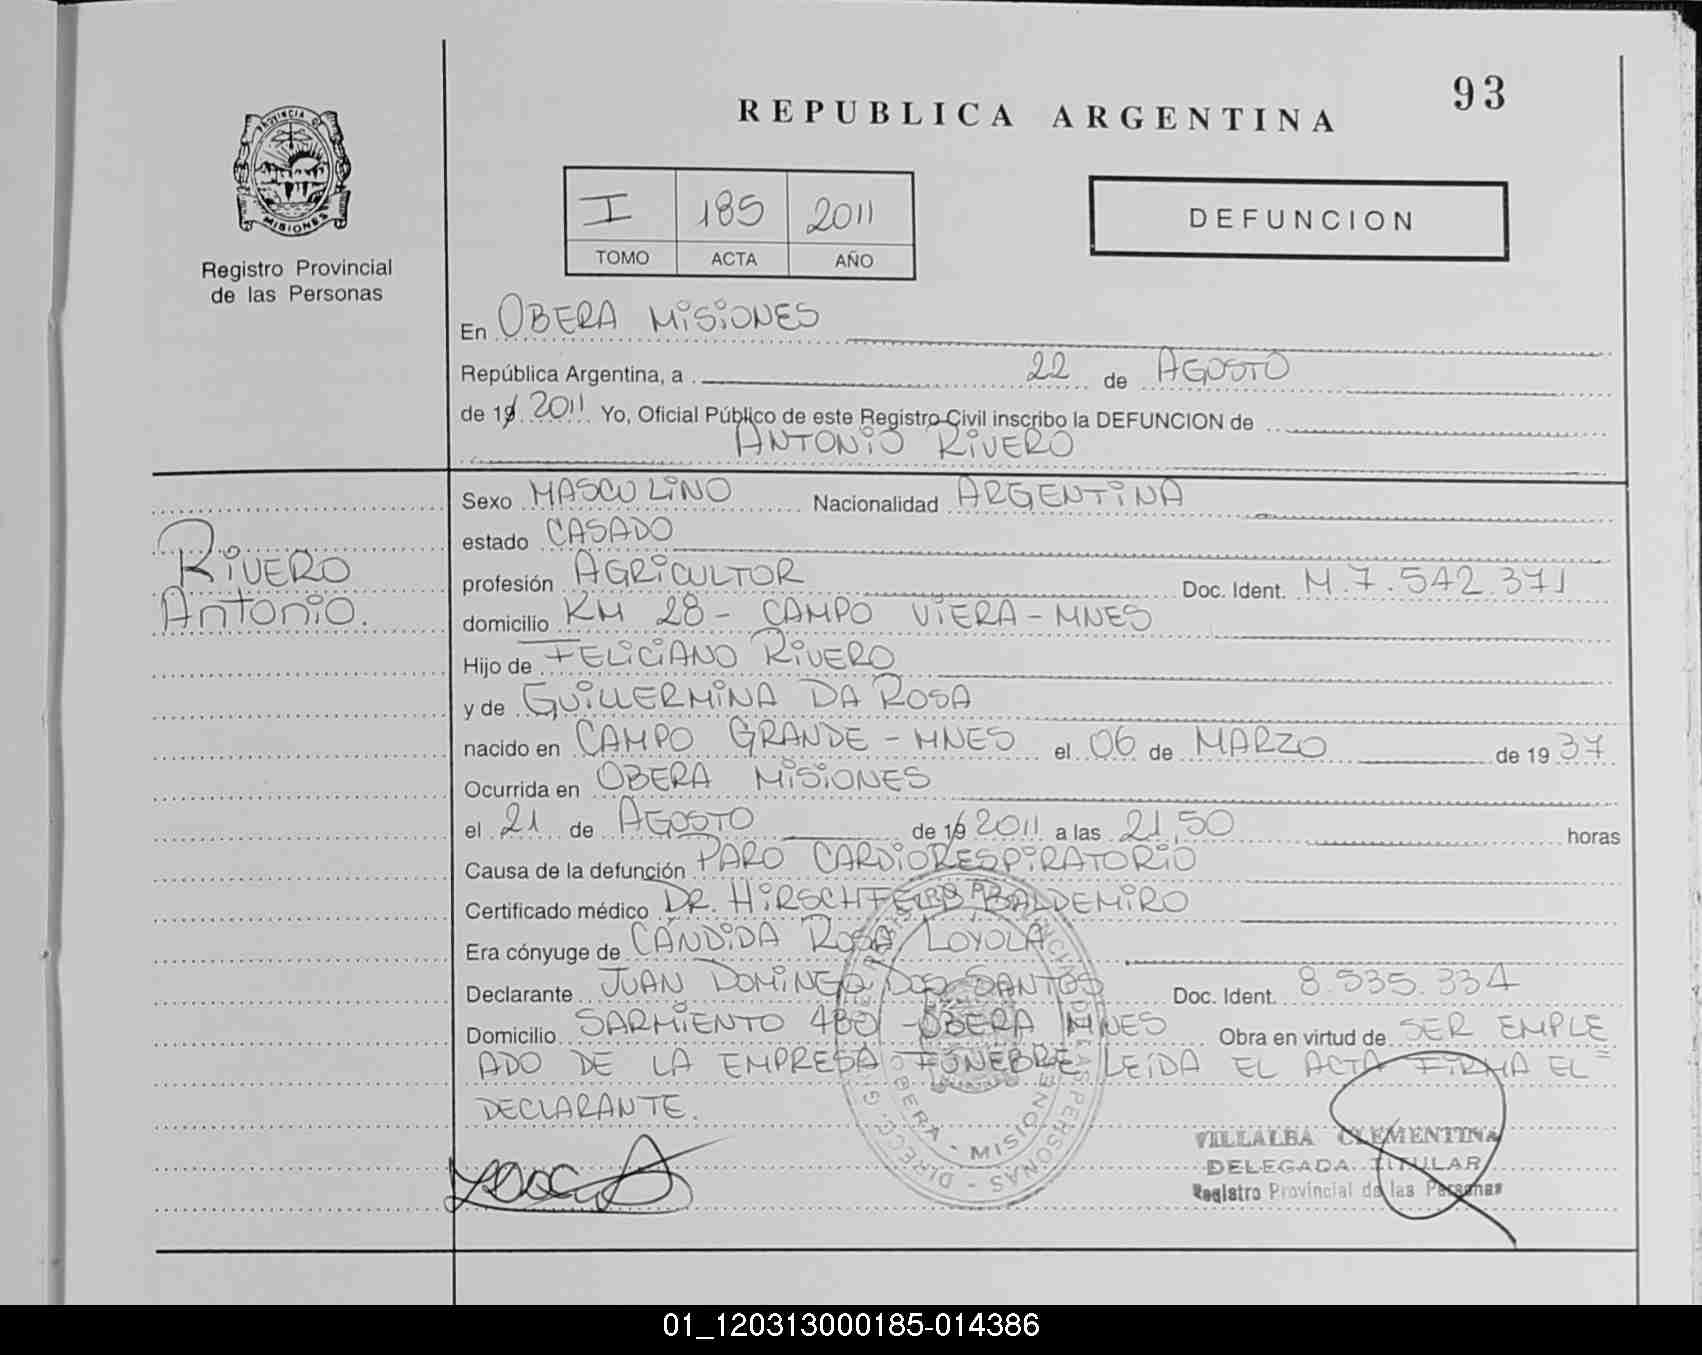 93
REPUBLICA ARGENTINA
PROVINCIA DE
MISIONES
Registro Provincial
de las Personas
I 185 2011
TOMO ACTA AÑO
DEFUNCION
En OBERA MISIONES
República Argentina, a 22 de AGOSTO
de 19 2011 Yo, Oficial Público de este Registro Civil inscribo la DEFUNCION de
ANTONIO RIVERO
Sexo MASCULINO Nacionalidad ARGENTINA
estado CASADO
RIVERO
Antonio.
profesión AGRICULTOR Doc. Ident. M.7.542.371
domicilio KM 28 - CAMPO VIERA - MNES
Hijo de FELICIANO RIVERO
y de GUILLERMINA DA ROSA
nacido en CAMPO GRANDE - MNES el 06 de MARZO de 19 37
Ocurrida en OBERA MISIONES
el 21 de AGOSTO de 19 2011 a las 21,50 horas
Causa de la defunción PARO CARDIORESPIRATORIO
Certificado médico DR. HIRSCHFELD BALDEMIRO
Era cónyuge de CANDIDA ROSA LOYOLA
Declarante JUAN DOMINGO DOS SANTOS Doc. Ident. 8.535.334
Domicilio SARMIENTO 480 - OBERA MNES Obra en virtud de SER EMPLE
ADO DE LA EMPRESA FUNEBRE LEIDA EL ACTA FIRMA EL
DECLARANTE.
OBERA - MISIONES
VILLALBA CLEMENTINA
DELEGADA TITULAR
Registro Provincial de las Personas
01_120313000185-014386